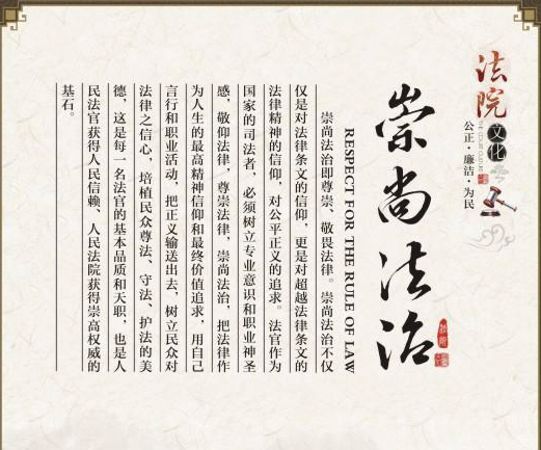 法院
文化
公正·廉洁·为民
崇尚法治
RESPECT FOR THE RULE OF LAW
崇尚法治即尊崇、敬畏法律。崇尚法治不仅
仅是对法律条文的信仰，更是对超越法律条文的
法律精神的信仰，对公平正义的追求。法官作为
国家的司法者，必须树立专业意识和职业神圣
感，敬仰法律，尊崇法律，崇尚法治，把法律作
为人生的最高精神信仰和最终价值追求，用自己
言行和职业活动，把正义输送出去，树立民众对
法律之信心，培植民众尊法、守法、护法的美
德，这是每一名法官的基本品质和天职，也是人
民法官获得人民信赖、人民法院获得崇高权威的
基石。